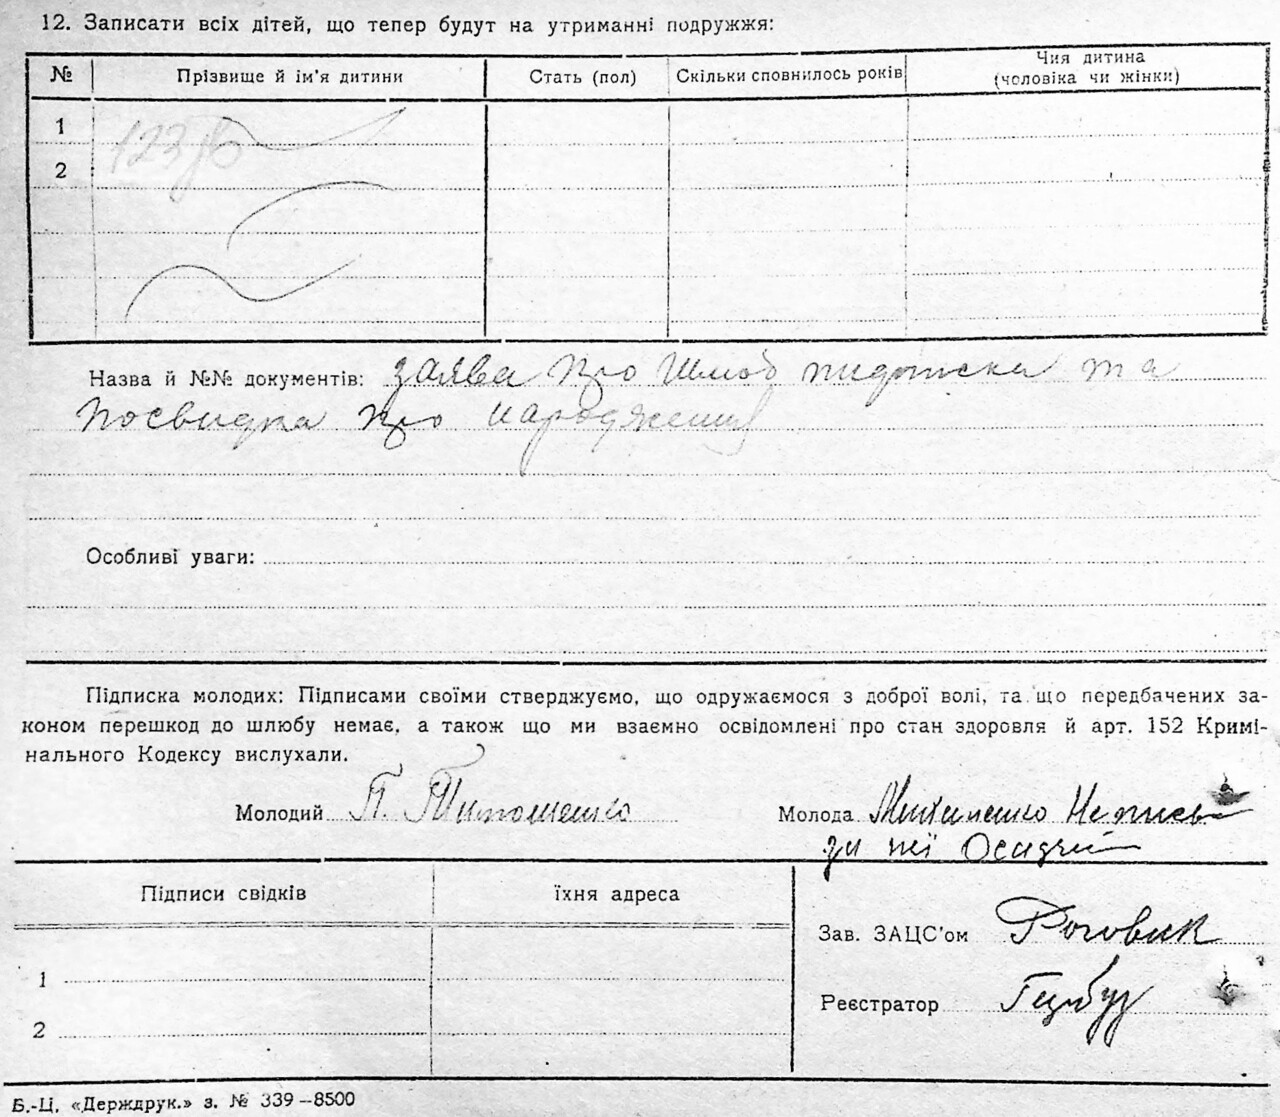 12. Записати всіх дітей, що тепер будут на утриманні подружжя:
№ Прізвище й ім'я дитини Стать (пол) Скільки сповнилось років Чия дитина
(чоловіка чи жінки)
1
2
Назва й №№ документів: заява про шлюб підписка та
посвидка про народження
Особливі уваги:
Підписка молодих: Підписами своїми стверджуємо, що одружаємося з доброї волі, та що передбачених за-
коном перешкод до шлюбу немає, а також що ми взаємно освідомлені про стан здоровля й арт. 152 Кримі-
нального Кодексу вислухали.
Молодий П. Молода
за неї
Підписи свідків їхня адреса
Зав. ЗАЦС'ом Роговик
1
Реєстратор
2
Б.-Ц. «Держдрук.» з. № 339–8500